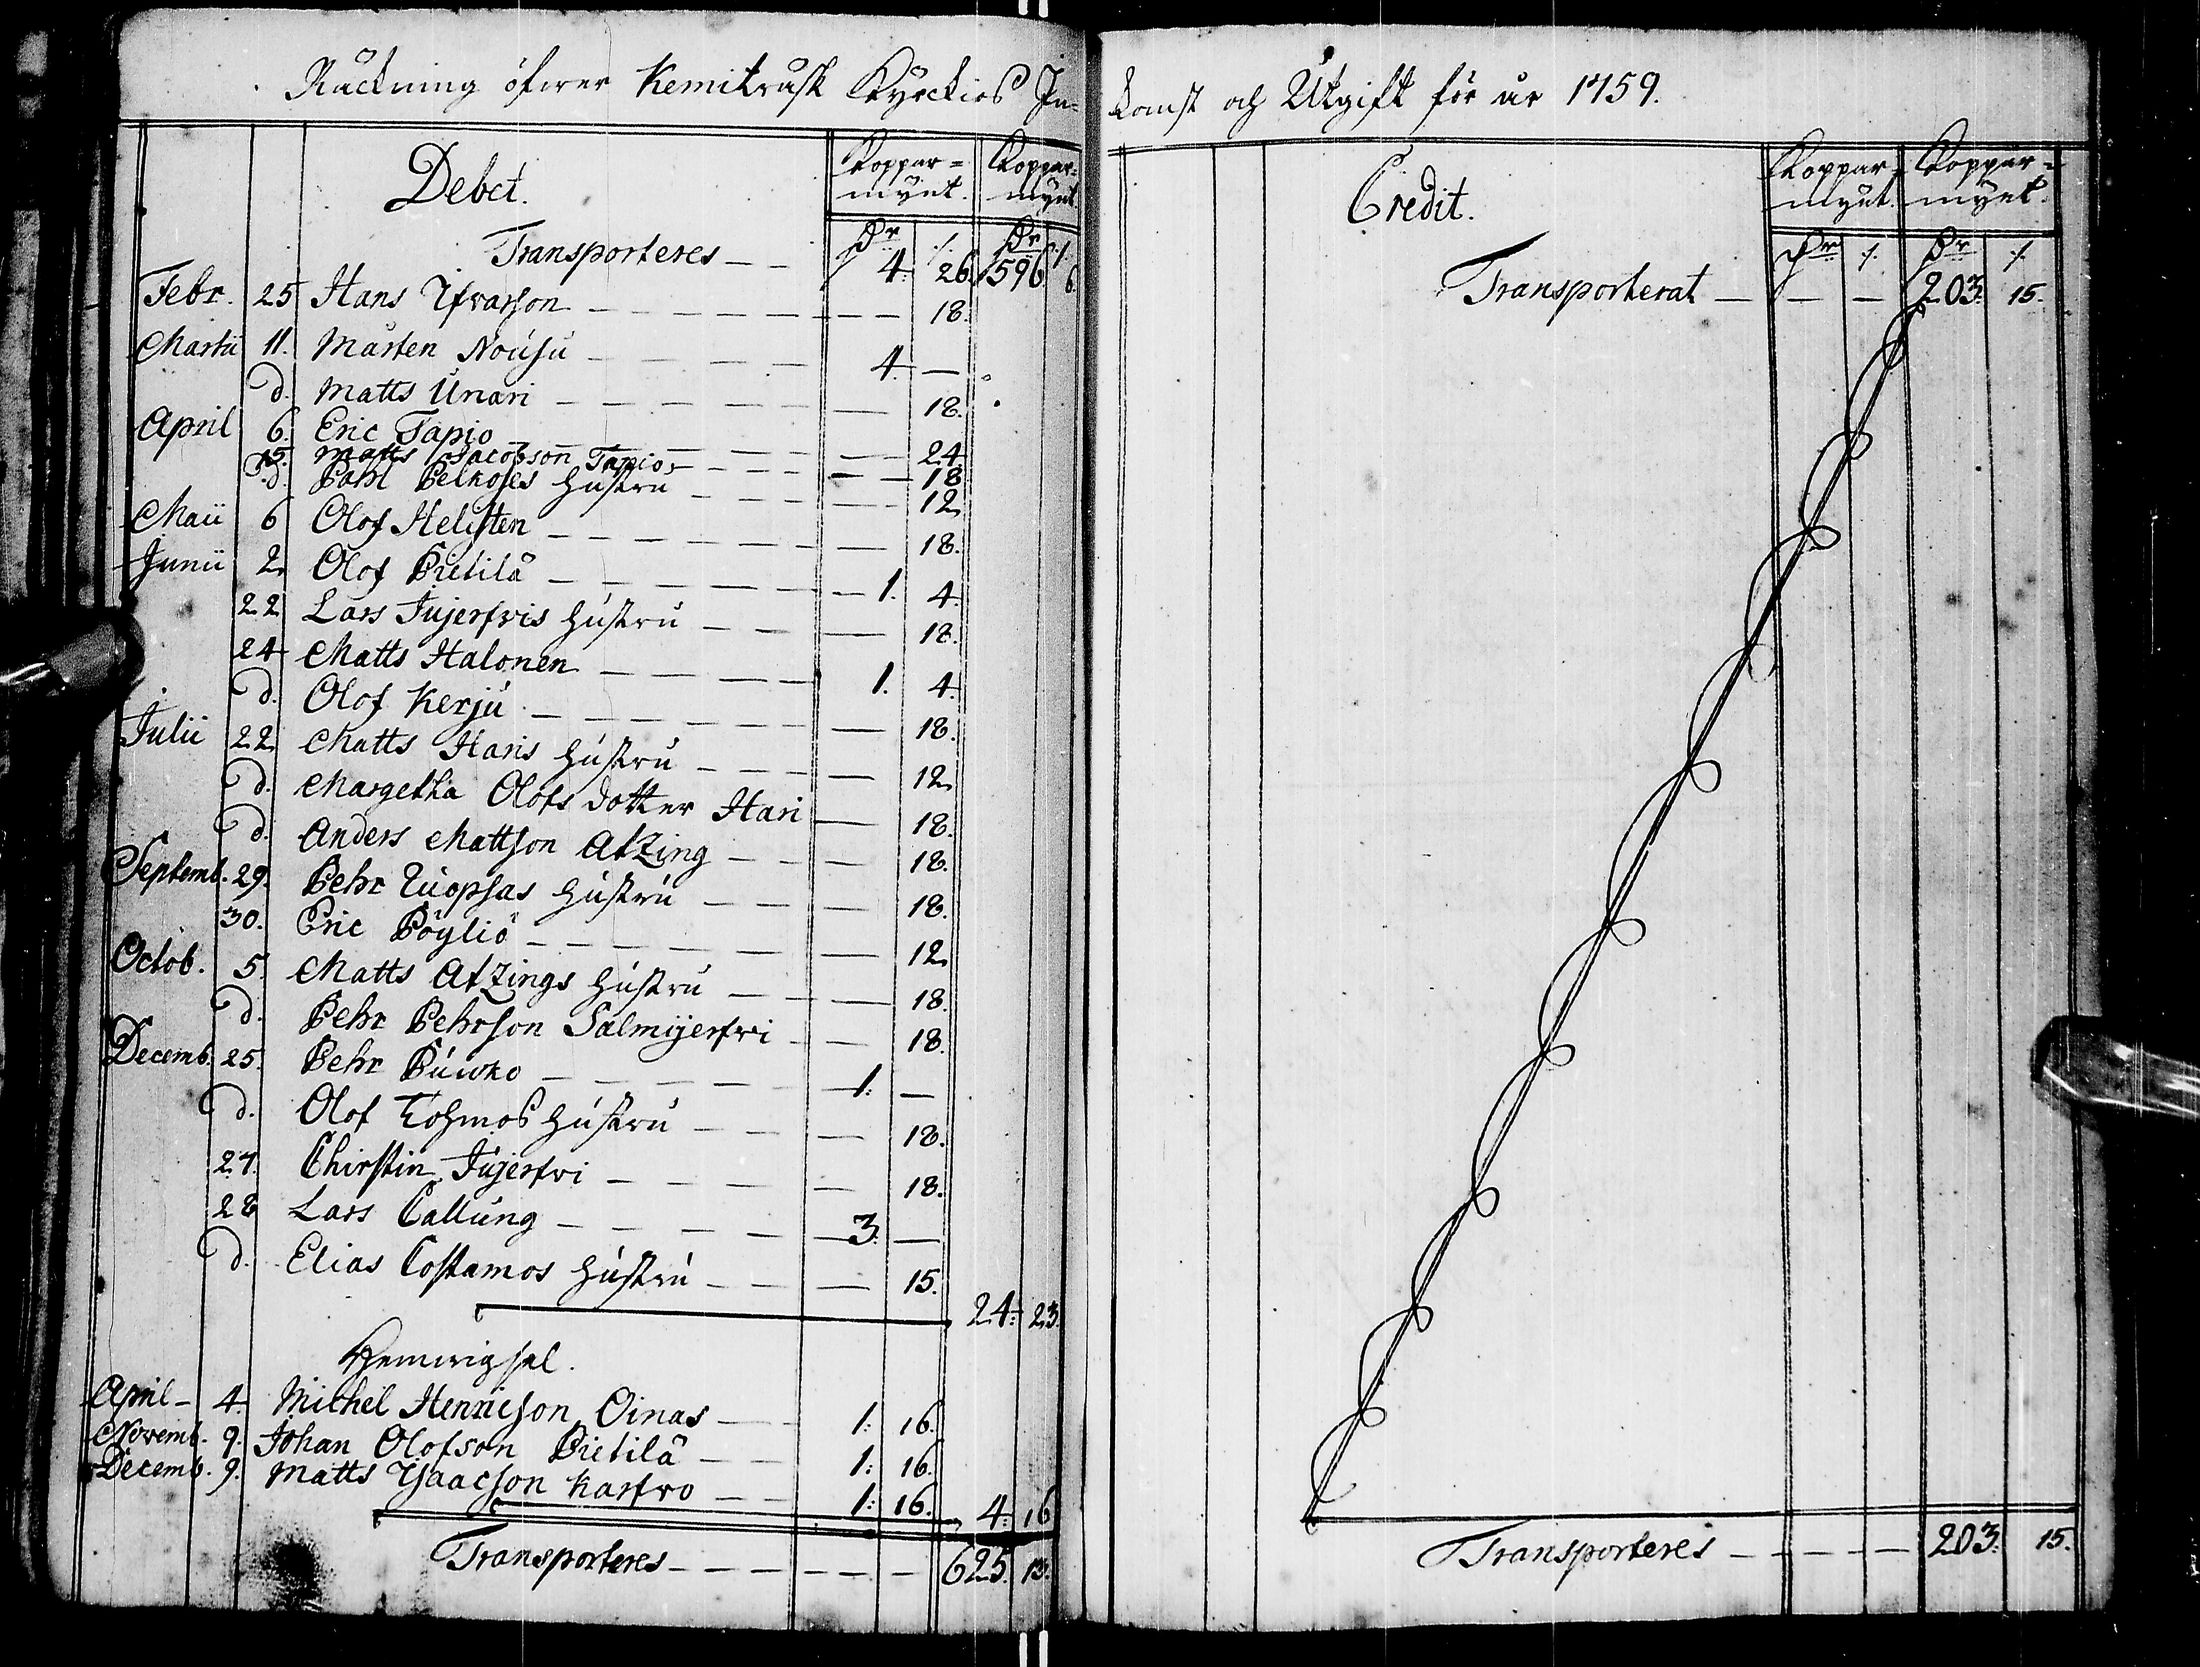 Räckning öfwer Kemiträsk Kyrckios In-
Debet.
Koppar=
mynt.
Koppar=
mynt.
Dr ./. Dr ./.
Transporteres — — 4. 26. 1596. 6.
Febr. 25 Hans Ifvarson — — — — — — 18.
Martii 11. Mårten Nousu — — — — 4. —
d. Matts Unari — — — — — 18.
April 6. Eric Tapio — — — — — 24.
15. Matts Jacobson Tapio — — — — 18
d. Påhl Pelkoses hustru — — — — 12.
Maii 6 Olof Helisten — — — — — — 18.
Junii 2. Olof Pietilä — — — — — 1. 4.
22 Lars Jujerfvis hustru — — — 18.
24 Matts Halonen — — — — 1. 4.
d. Olof Kerju — — — — — — 18.
Julii 22 Matts Haris hustru — — — — 12.
d. Margetha Olofs dotter Hari — 18.
d. Anders Mattson Atzing — — — 18.
Septemb. 29. Pehr Luopsas hustru — — — 18.
30. Eric Pöyliö — — — — — — 12.
Octob. 5. Matts Atzings hustru — — — 18.
d. Pehr Pehrson Salmijerfvi — — 18.
Decemb. 25. Pehr Puwko — — — — 1. —
d. Olof Kohmos hustru — — — 18.
27. Chirstin Jujerfvi — — — — 18.
28 Lars Callung — — — — 3. —
d. Elias Costamos hustru — — — 15.
24: 23.
Hemwigsel.
April — 4. Michel Henricson Oinas — — 1: 16.
Novemb. 9. Johan Olofson Pietilä — — 1: 16.
Decemb. 9. Matts Isaacson Karfvo — — 1: 16. 4: 16
Transporteres — — — — — — 625. 13.
komst och Utgift för år 1759.
Credit.
Koppar=
mynt.
Koppar=
mynt.
Dr ./. Dr ./.
Transporterat — — — 203. 15.
Transporteres — — — — — 203. 15.